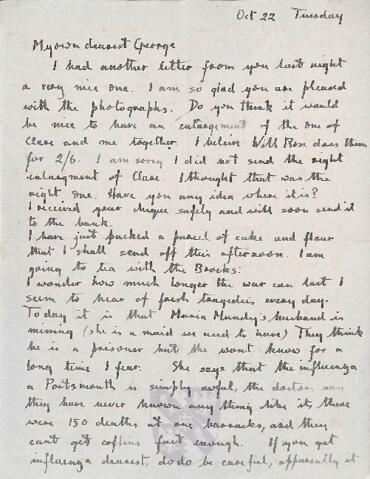 Oct 22 Tuesday
My own dearest George
I had another letter from you last night
a very nice one. I am so glad you are pleased
with the photographs. Do you think it would
be nice to have an enlargement of the one of
Clare and me together. I believe Will Rose does them
for 2/6. I am sorry I did not send the right
enlargment of Clare. I thought that was the
right one. Have you any idea where it is?
I received your cheque safely and will soon send it
to the bank.
I have just packed a parcel of cake and flour
that I shall send off this afternoon. I am
going to tea with the Brocks:
I wonder how much longer the war can last I
seem to hear of fresh tragedies every day.
Today it is that Maria Mundy's husband is
missing (she is a maid we used to have) They think
he is a prisoner but she wont know for a
long time I fear. She says that the influenza
a Portsmouth is simply awful, the doctors say
they have never known any thing like it, there
were 150 deaths at one barracks, and they
cant get coffins fast enough. If you get
influenza dearest, do do be careful, apparently it